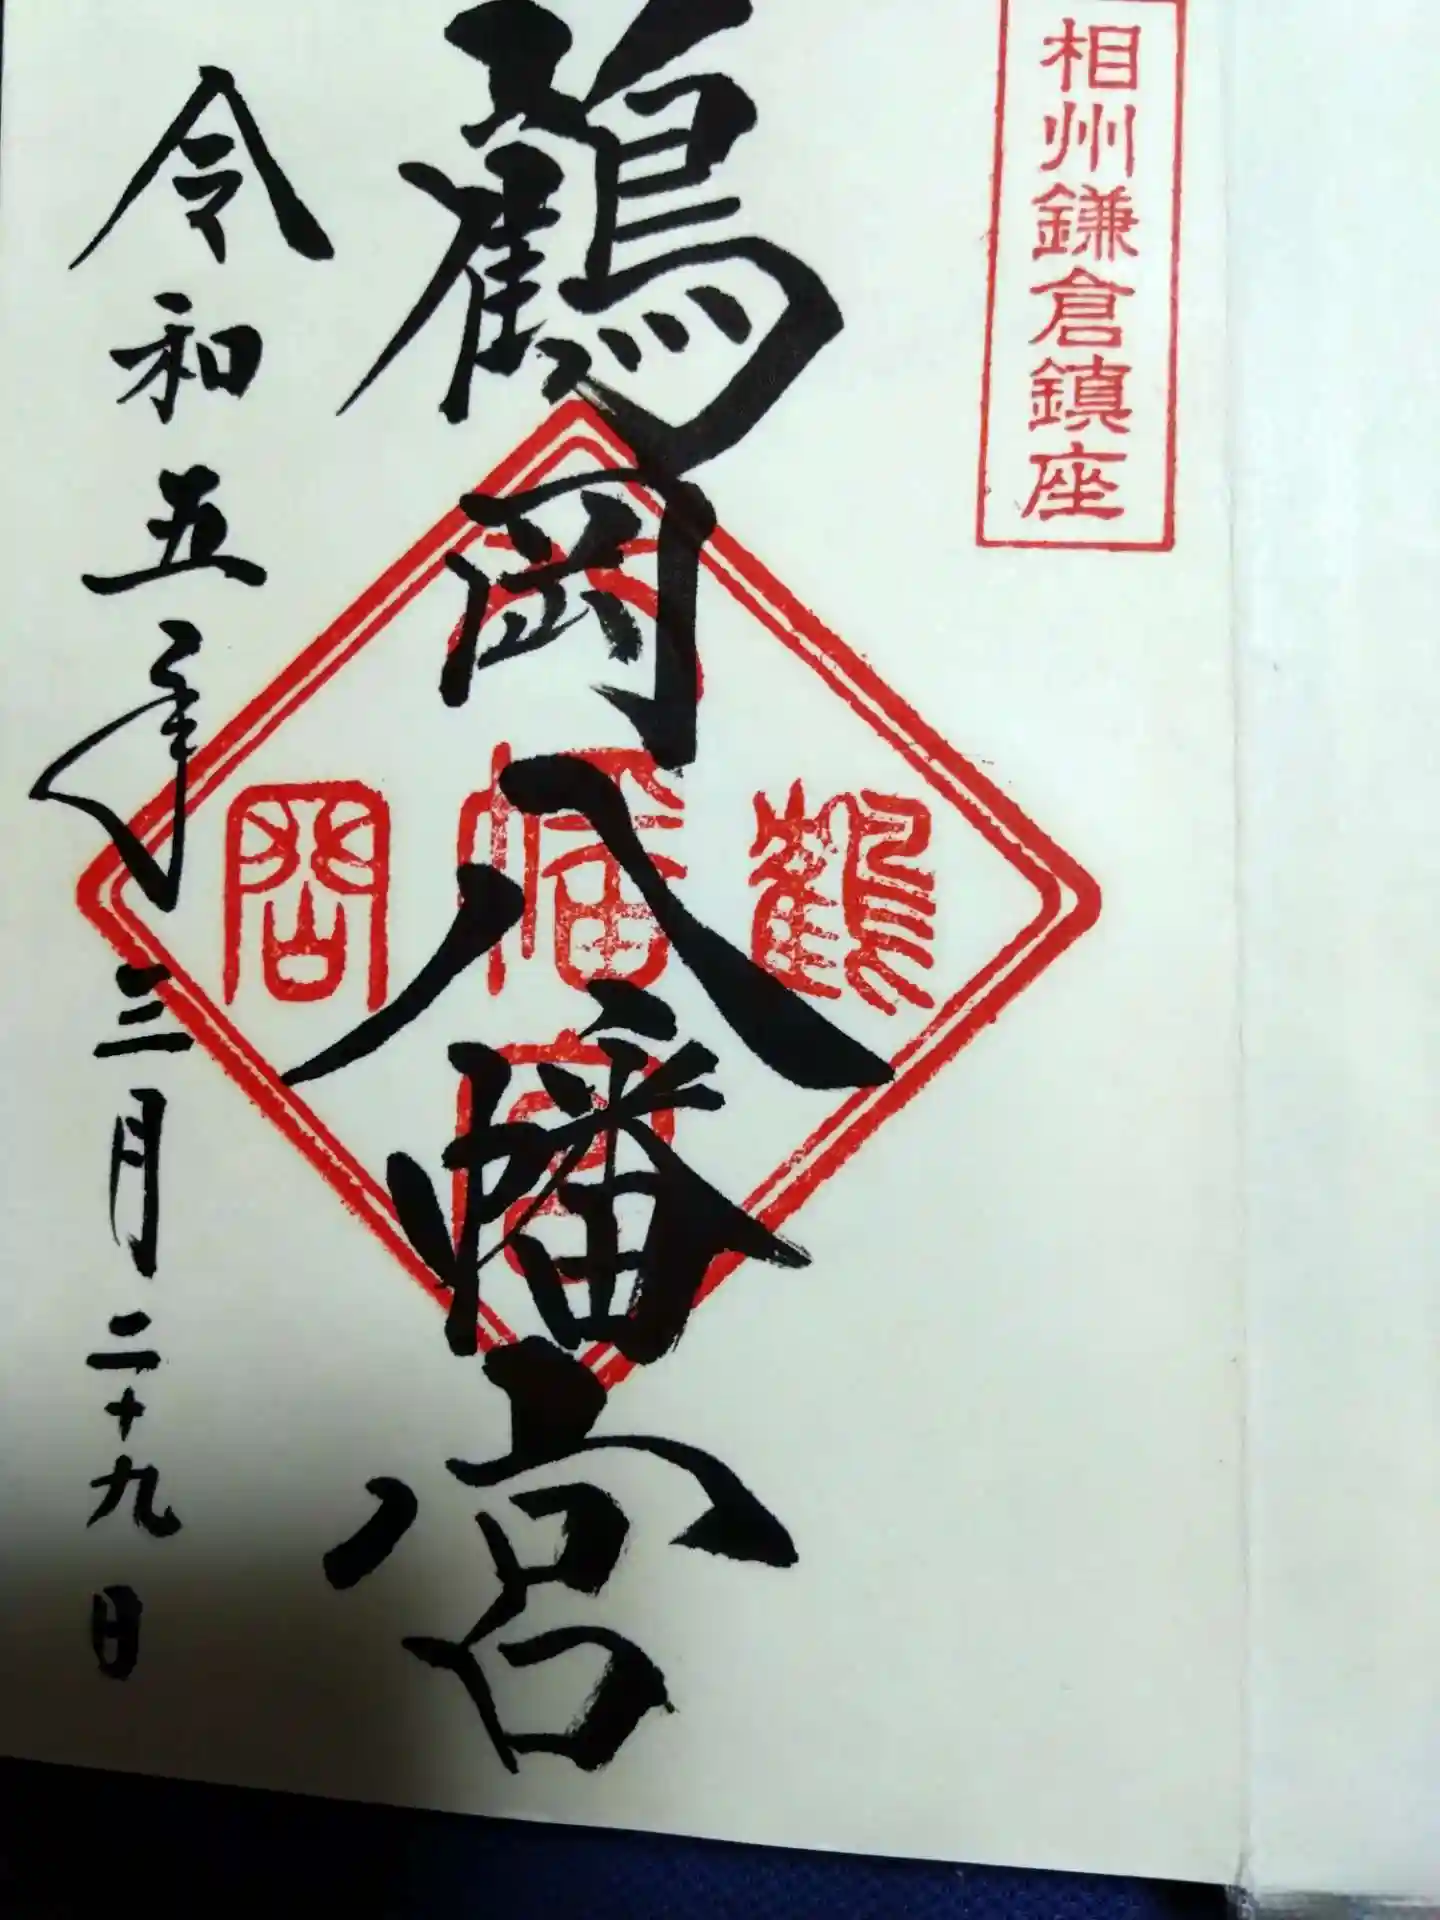 相州鎌倉鎮座
鶴岡八幡宮
八
鶴 幡 岡
宮
令和五年三月二十九日